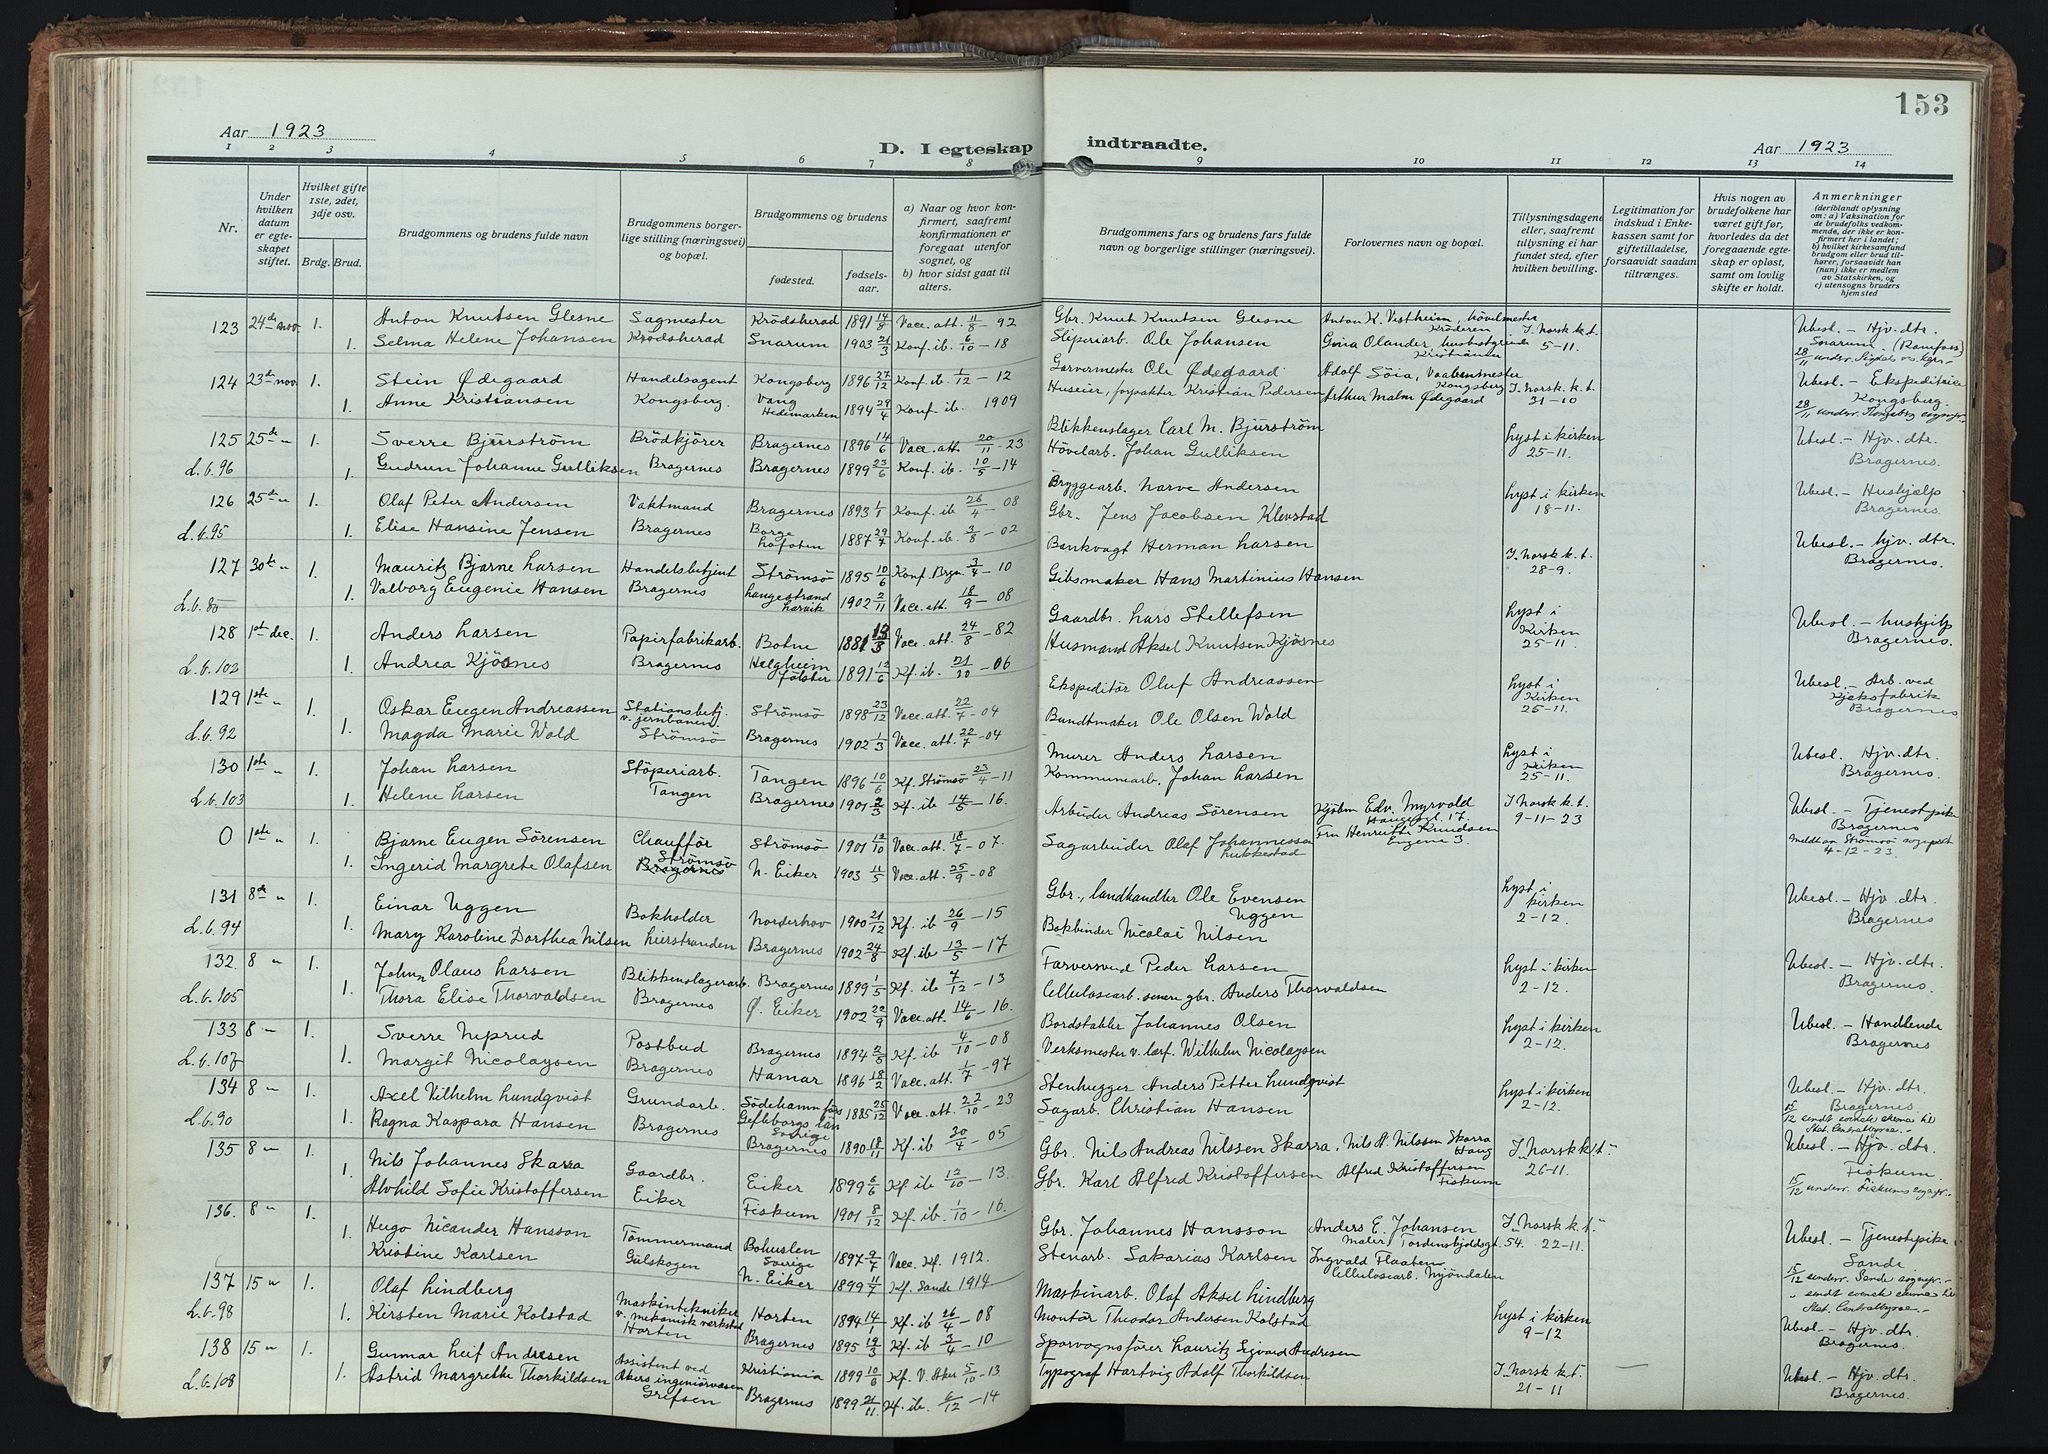 153
Aar 1923
D. I egteskap indtraadte.
Aar 1923
1 2 3 4 5 6 7 8 9 10 11 12 13 14
Nr.
Under hvilken datum er egteskapet stiftet.
Hvilket gifte 1ste, 2det, 3dje osv.
Brdg. Brud.
Brudgommens og brudens fulde navn
Brudgommens borgerlige stilling (næringsvei) og bopæl.
Brudgommens og brudens
fødested.
fødselsaar.
a) Naar og hvor konfirmert, saafremt konfirmationen er foregaat utenfor sognet, og
b) hvor sidst gaat til alters.
Brudgommens fars og brudens fars fulde navn og borgerlige stillinger (næringsvei).
Forlovernes navn og bopæl.
Tillysningsdagene eller, saafremt tillysning ei har fundet sted, efter hvilken bevilling.
Legitimation for indskud i Enkekassen samt for giftetilladelse, forsaavidt saadan tiltrænges.
Hvis nogen av brudefolkene har været gift før, hvorledes da det foregaaende egteskap er opløst, samt om lovlig skifte er holdt.
Anmerkninger
(deriblandt oplysning om: a) Vaksination for de brudefolks vedkommende, der ikke er konfirmert her i landet; b) hvilket kirkesamfund brudgom eller brud tilhører, forsaavidt han (hun) ikke er medlem av Statskirken, og c) utensogns bruders hjemsted
123 24de nov. 1. Anton Knutsen Glesne Sagmester Krödsherad 1891 14/8 Vacc. att. 11/8 - 92 Gbr. Knut Knutsen Glesne Anton K. Vestheim, hövilmester Kröderen J. Norsk k. t. 5-11. Ubesl. - Hjv. dtr.
1. Selma Helene Johansen Krödsherad Snarum 1903 21/3 Konf. ib. 6/10 - 18 Sliperiarb. Ole Johansen Olander Kristiania Snarum.
124 23de nov. 1. Stein Ødegaard Handelsagent Kongsberg 1896 27/12 Konf. ib. 1/12 - 12 Garvermester Ole Ødegaard Adolf Söia, Vaabenmester Kongsberg J. Norsk k. t. 31-10 Ubesl. - Ekspeditrice Kongsberg.
1. Anne Kristiansen Kongsberg. Vang Hedemarken 1894 29/4 Konf. ib. 1909 Huseier, forpakter Kristian Pedersen Arthur Malm Ødegaard 28/11 underr. Kongsberg sognepr.
125 25de " 1. Sverre Bjurström Brödkjörer Bragernes 1896 14/6 Vacc. att. 20/11 - 23 Blikkenslager Carl M. Bjurström Lyst i kirken 25-11. Ubesl. - Hjv. dtr. Bragernes.
L. b. 96 1. Gudrun Johanne Gulliksen Bragernes Bragernes 1899 23/6 Konf. ib. 10/5 - 14 Hövelarb. Johan Gulliksen
126 25de " 1. Olaf Peter Andersen Vaktmand Bragernes 1893 1/1 Konf. ib. 26/4 - 08 Bryggearb. Narve Andersen Lyst i kirken 18-11. Ubesl. - Hushjælp Bragernes.
L. b. 95 1. Elise Hansine Jensen Bragernes Borge Lofoten 1887 29/7 Konf. ib. 3/8 - 02 Gbr. Jens Jacobsen Klevstad
127 30te " 1. Mauritz Bjarne Larsen Handelsbetjent Strömsö 1895 10/6 Konf. Bgn. 3/4 - 10 Bankvagt Herman Larsen J. Norsk k. t. 28-9. Ubesl. - Hjv. dtr. Bragernes.
L. b. 80 1. Valborg Eugenie Hansen Bragernes Langestrand Larvik 1902 2/11 Vacc. att. 18/9 - 08 Gibsmaker Hans Martinius Hansen
128 1ste dec. 1. Anders Larsen Papirfabrikarb. Botne 1881 13/3 Vacc. att. 24/8 - 82 Gaardbr. Lars Stellefsen Lyst i Kirken 25-11. Ubesl. - hushjelp Bragernes.
L. b. 102 1. Andrea Kjösnes Bragernes Helgheim Jölster 1891 12/6 Kf. ib. 21/20 - 06 Husmand Aksel Knutsen Kjösnes
129 1ste " 1. Oskar Eugen Andreassen Stationsbetj. v. jernbanen. Strömsö 1898 23/12 Vacc. att. 22/4 - 04 Ekspeditör Oluf Andreassen Lyst i Kirken 25-11. Ubesl. - Arb. ved Kjeksfabrik Bragernes
L. b. 92 1. Magda Marie Wold Strömsö Bragernes 1902 1/3 Vacc. att. 22/7 - 04 Bundtmaker Ole Olsen Wold
130 1ste " 1. Johan Larsen Stöperiarb. Tangen 1896 10/6 Kf. Strömsö 23/4 - 11 Murer Anders Larsen Lyst i Kirken 25-11. Ubesl. - Hjv. dtr. Bragernes.
L. b. 103 1. Helene Larsen Tangen Bragernes 1901 2/3 Kf. ib 14/5 - 16. Kommunearb. Johan Larsen
0 1ste " 1. Bjarne Eugen Sörensen Chaufför Strömsö 1901 12/10 Vacc. att. 18/7 - 07. Arbeider Andreas Sörensen Kjöbm. Edv. Myrvold Haugesgt. 17. J. Norsk k. t. 9-11-23 Ubesl. - Tjenestepike Bragernes
1. Ingerid Margrete Olafsen Strömsö Bragernes N. Eiker 1903 11/5 Vacc. att. 25/9 - 08 Sagarbeider Olaf Johannessen Lukkestad Fru Henriette Knudsen Eugene 3. meldt til Strömsö sognepr. 4-12-23.
131 8de " 1. Einar Uggen Bokholder Norderhov 1900 21/12 Kf. ib 26/9 - 15 Gbr., landhandler Ole Evensen Uggen Lyst i kirken 2-12. Ubesl. - Hjv. dtr. Bragernes
L. b. 94 1. Mary Karoline Dorthea Nilsen Lierstranden Bragernes 1902 24/8 Kf. ib. 13/5 - 17 Bokbinder Nicolai Nilsen
132. 8 " 1. Johan Olaus Larsen Blikkenslagerarb. Bragernes 1899 1/5 Kf. ib 7/12 - 13 Farversvend Peder Larsen Lyst i kirken 2-12. Ubesl. - Hjv. dtr. Bragernes.
L. b. 105 1. Thora Elise Thorvaldsen Bragernes Ø. Eiker 1902 22/9 Vacc. att. 14/6 - 16. Cellulosearb. senere gbr. Anders Thorvaldsen
133 8 " 1. Sverre Neprud Postbud Bragernes 1894 2/5 Kf. ib 4/10 - 08 Bordstabler Johannes Olsen Lyst i kirken 2-12. Ubesl. - Handlende Bragernes
L. b. 107 1. Margit Nicolaysen Bragernes Hamar 1896 18/2 Vacc. att. 1/7 - 97 Verksmester v. larf. Wilhelm Nicolaysen
134 8 " 1. Axel Vilhelm Lundqvist Grundarb. Södehamn förs Gefleborgs län Sverige 1885 25/12 Vacc. att. 22/10 - 23 Stenhugger Anders Petter Lundqvist Lyst i kirken 2-12. Ubesl. - Hjv. dtr. Bragernes
L. b. 90 1. Ragna Kaspara Hansen Bragernes Bragernes 1890 18/11 Kf. ib 30/4 - 05 Sagarb. Christian Hansen 15/12 sendt svenske skema til Stat. Centralbyraa.
135 8 " 1. Nils Johannes Skarra Gaardbr. Eiker 1899 6/6 Kf. ib 12/10 - 13. Gbr. Nils Andreas Nilssen Skarra, Nils A. Nilssen Skarra Haug J. Norsk k. t. 26-11. Ubesl. - Hjv. dtr. Fiskum
1. Alvhild Sofie Kristoffersen Eiker Fiskum 1901 8/12 Kf. ib. 1/10 - 16. Gbr. Karl Alfred Kristoffersen Alfred Kristoffersen Fiskum 15/12 underr. Fiskums sognepr.
136. 8 " 1. Hugo Nicander Hansson Tömmermand Bohuslen Sverige 1897 9/7 Vacc. Kf. 1912. Gbr. Johannes Hansson Anders E. Johansen Maler Tordenskjoldsgt. 54. J. Norsk k. t. 22-11. Ubesl. - Tjenestepike Sande
1. Kristine Karlsen Gulskogen N. Eiker 1899 11/7 Kf. Sande 1914 Stenarb. Sakarias Karlsen Ingvald Flaaten Cellulosearb. Mjöndalen 15/12 underr. Sande sognepr. " sendt svensk skema til Stat. Centralbyraa
137 15 " 1. Olaf Lindberg Maskintekniker v. mekanisk verksted Horten Horten 1894 14/1 Kf. ib 26/4 - 08 Maskinarb. Olaf Aksel Lindberg Lyst i kirken 9-12 Ubesl. - Hjv. dtr. Bragernes.
L. b. 98 1. Kirsten Marie Kolstad Bragernes 1895 19/3 Kf. ib 3/4 - 10 Montör Theodor Andersen Kolstad
138 15 " 1. Gunnar Leif Andresen Assistent ved Akers ingeniörvæsen Grefsen Kristiania 1899 10/6 Kf. V. Aker 5/10 - 13 Sporvognsförer Lauritz Sigvard Andresen J. Norsk k. t. 21-11 Ubesl. - Hjv. dtr. Bragernes.
L. b. 108 1. Astrid Margrethe Thorkildsen Bragernes 1899 21/11 Kf. ib. 6/12 - 14 Typograf Hartvig Adolf Thorkildsen